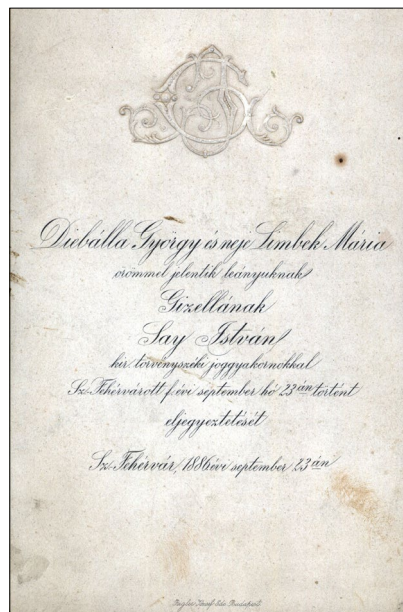 Diebálla György és neje Limbek Mária
örömmel jelentik leányuknak
Gizellának
Say István
kir törvényszéki joggyakornokkal
Sz. Fehérvárott f. évi september hó 23án történt
eljegyeztetését
Sz. Fehérvár, 1886 évi september 23án
Rigler József Ede Budapest